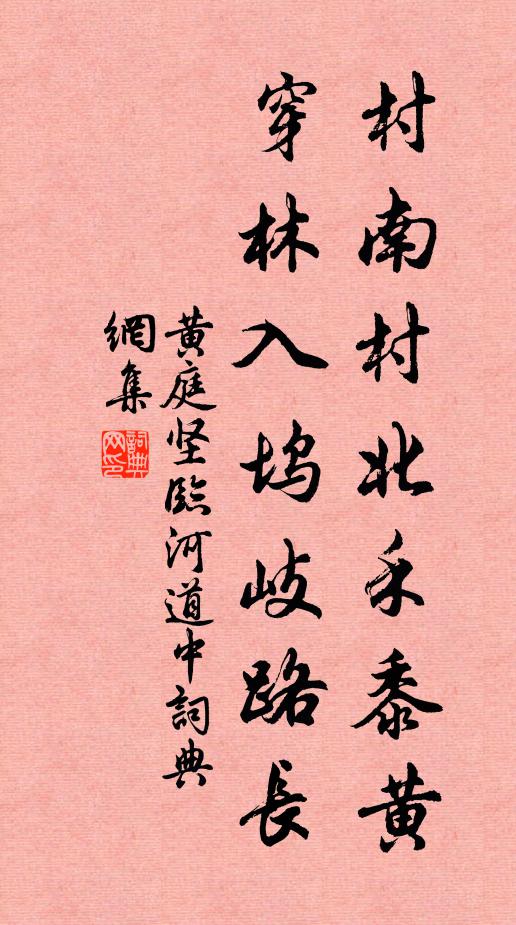 村南村北禾黍黄
穿林入坞岐路長
黄庭坚臨河道中詞典
網集
詞典
网印